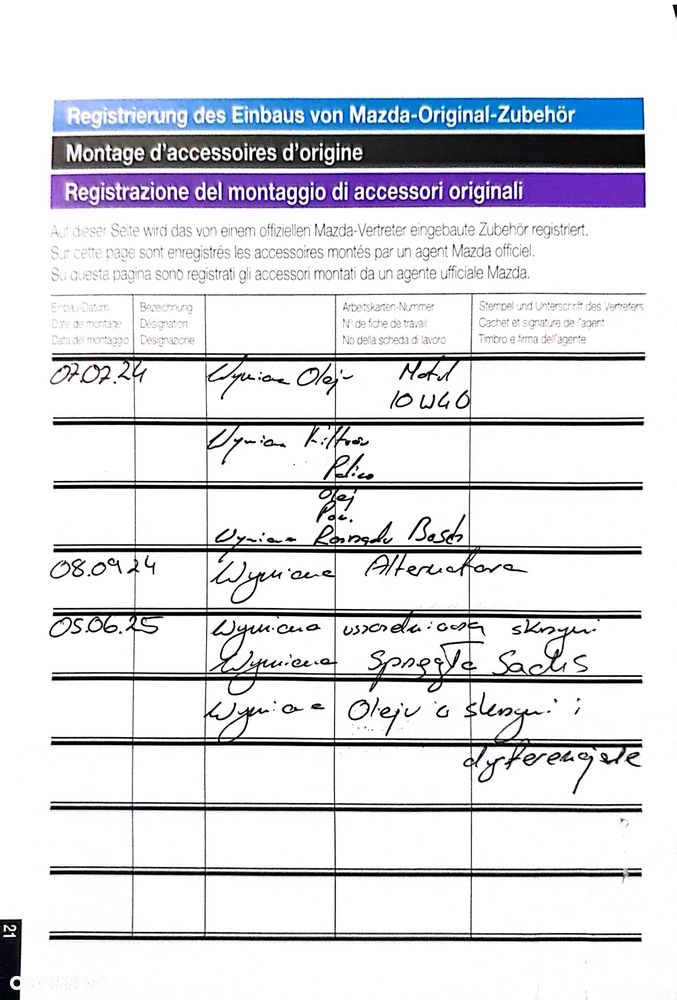 Registrierung des Einbaus von Mazda-Original-Zubehör
Montage d'accessoires d'origine
Registrazione del montaggio di accessori originali
Auf dieser Seite wird das von einem offiziellen Mazda-Vertreter eingebaute Zubehör registriert.
Sur cette page sont enregistrés les accessoires montés par un agent Mazda officiel.
Su questa pagina sono registrati gli accessori montati da un agente ufficiale Mazda.
Einbau-Datum Bezeichnung Arbeitskarten-Nummer Stempel und Unterschrift des Vertreters
Date de montage Désignation N° de fiche de travail Cachet et signature de l'agent
Data del montaggio Designazione No della scheda di lavoro Timbro e firma dell'agente
07.07.24 Wymiana Oleju Motul
10W40
Wymiana Filtrów
Paliwo
Olej
Pow.
Wymiana Rozrządu Bosch
08.09.24 Wymiana Alternatora
05.06.25 Wymiana skrzyni
Wymiana Sprzęgła Sachs
Wymiana Oleju w skrzyni i
dyferencjale
21